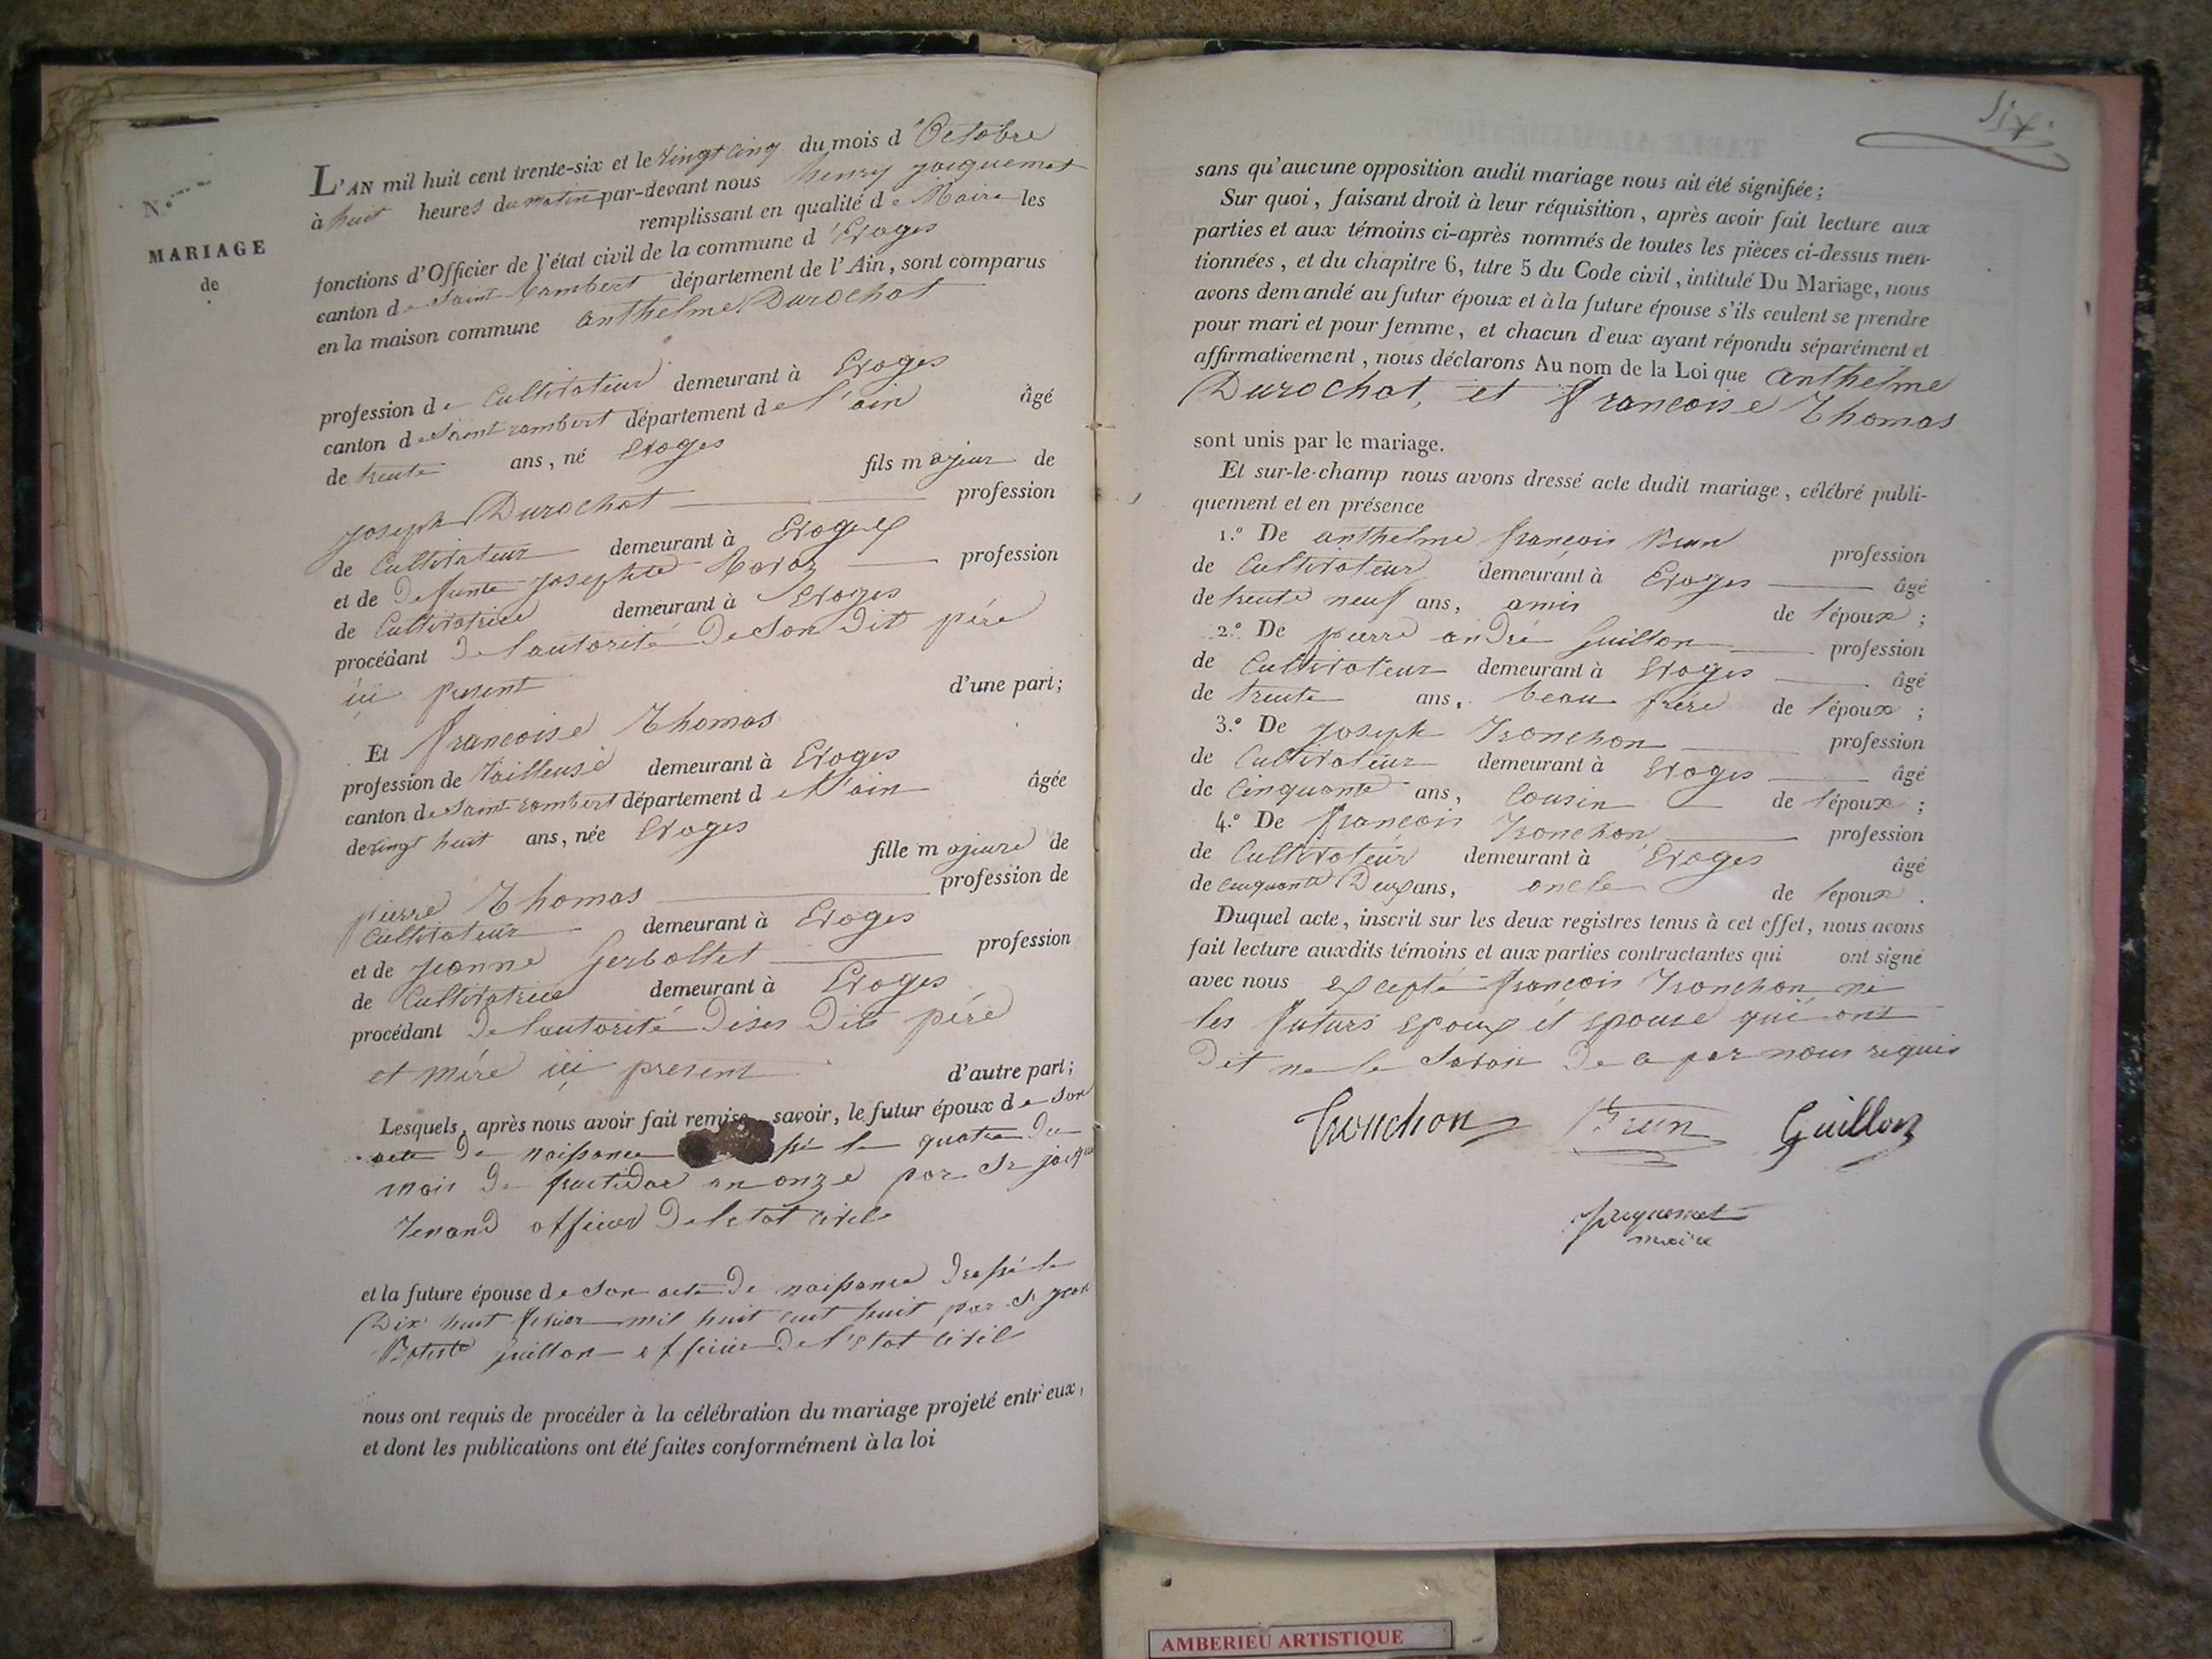 N.o
MARIAGE
de
L'AN mil huit cent trente-six et le vingt cinq du mois d'Octobre
à huit heures du matin par-devant nous henry jacquemet
remplissant en qualité de Maire les
fonctions d'Officier de l'état civil de la commune d'Evoges
canton de Saint Rambert département de l'Ain, sont comparus
en la maison commune anthelme Durochat
profession de Cultivateur demeurant à Evoges
canton de Saint rambert département de l'ain âgé
de trente ans, né Evoges
fils majeur de
joseph Durochat profession
de Cultivateur demeurant à Evoges
et de Defunte josephte profession
de Cultivatrice demeurant à Evoges
procédant De l'autorité De Son Dit père
ici present d'une part;
Et francoise Thomas
profession de Tailleuse demeurant à Evoges
canton de Saint rambert département de l'ain âgée
de vingt huit ans, née Evoges
fille majeure de
pierre Thomas profession de
Cultivateur demeurant à Evoges
et de jeanne Gerbollet profession
de Cultivatrice demeurant à Evoges
procédant De l'autorité De ses Dits père
et mère ici present d'autre part;
Lesquels, après nous avoir fait remise, savoir, le futur époux de son
acte De naissance le quatre Du
mois De fructidor an onze par Sr jacque
Tenand officier De l'etat civil
et la future épouse de Son acte De naissance Dressé le
Dix huit fevrier mil huit cent huit par Sr jean
Batiste guillon officier De l'etat civil
nous ont requis de procéder à la célébration du mariage projeté entr'eux,
et dont les publications ont été faites conformément à la loi
Six.
sans qu'aucune opposition audit mariage nous ait été signifiée;
Sur quoi, faisant droit à leur réquisition, après avoir fait lecture aux
parties et aux témoins ci-après nommés de toutes les pièces ci-dessus men-
tionnées, et du chapitre 6, titre 5 du Code civil, intitulé Du Mariage, nous
avons demandé au futur époux et à la future épouse s'ils veulent se prendre
pour mari et pour femme, et chacun d'eux ayant répondu séparément et
affirmativement, nous déclarons Au nom de la Loi que anthelme
Durochat, et francoise Thomas
sont unis par le mariage.
Et sur-le-champ nous avons dressé acte dudit mariage, célébré publi-
quement et en présence
1.o De anthelme françois Brun profession
de Cultivateur demeurant à Evoges âgé
de trente neuf ans, amis de l'époux;
2.o De pierre andré Guillon profession
de Cultivateur demeurant à Evoges âgé
de trente ans, beau frère de l'époux;
3.o De joseph Tronchon profession
de Cultivateur demeurant à Evoges âgé
de Cinquante ans, Cousin de l'époux;
4.o De françois Tronchon profession
de Cultivateur demeurant à Evoges âgé
de cinquante Deux ans, oncle de l'epoux.
Duquel acte, inscrit sur les deux registres tenus à cet effet, nous avons
fait lecture auxdits témoins et aux parties contractantes qui ont signé
avec nous excepté françois Tronchon ni
les futurs epoux et epouse qui ont
Dit ne le Savoir De ce par nous requis
Tronchon Brun Guillon
jacquemet
maire
AMBERIEU ARTISTIQUE